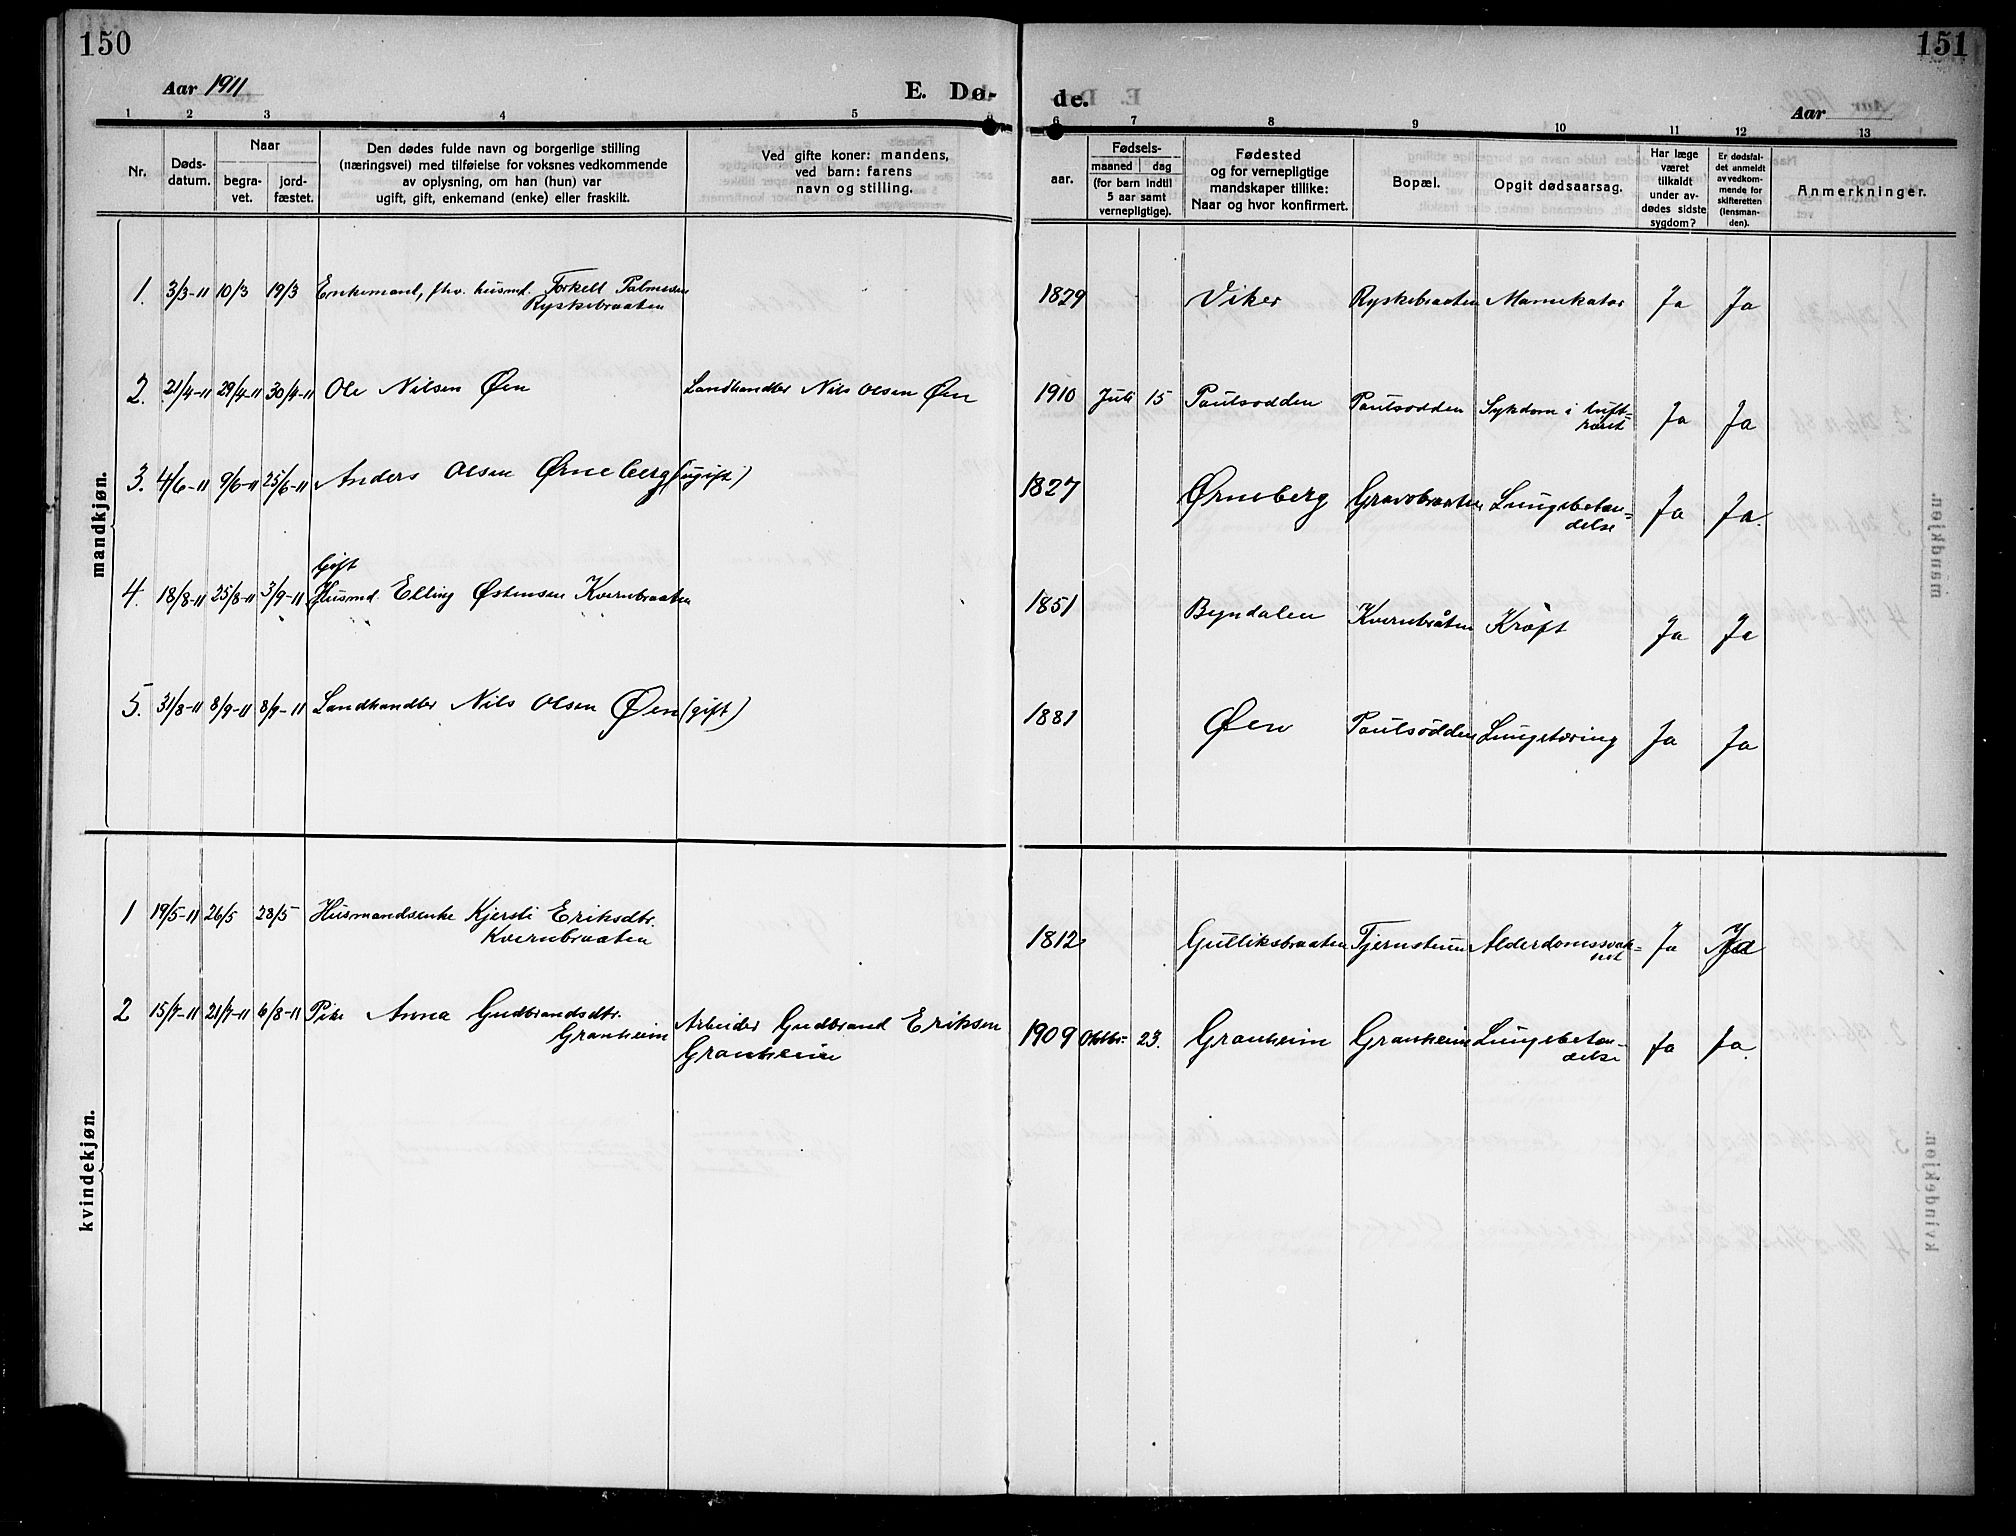 150
151
Aar 1911
E. Dø-
de.
Aar
1 2 3 4 5 6
6 7 8 9 10 11 12 13
Nr.
Døds-
datum.
Naar
begra-
vet.
jord-
fæstet.
Den dødes fulde navn og borgerlige stilling
(næringsvei) med tilføielse for voksnes vedkommende
av oplysning, om han (hun) var
ugift, gift, enkemand (enke) eller fraskilt.
Ved gifte koner: mandens,
ved barn: farens
navn og stilling.
aar.
Fødsels-
maaned dag
(for barn indtil
5 aar samt
vernepligtige).
Fødested
og for vernepligtige
mandskaper tillike:
Naar og hvor konfirmert.
Bopæl.
Opgit dødsaarsag.
Har læge
været
tilkaldt
under av-
dødes sidste
sygdom?
Er dødsfal-
det anmeldt
av vedkom-
mende for
skifteretten
(lensman-
den).
Anmerkninger.
mandkjøn.
1. 3/3-11 10/3 19/3 Enkemand, fhv. husmd. Torkell Palmesen
Ryskebraaten
1829 Viker Ryskebraaten Ja Ja
2. 21/4-11 29/4-11 30/4-11 Ole Nilsen Øen Landhandler Nils Olsen Øen
1910 Juli 15 Paulsodden Paulsodden Sykdom i luft-
røret Ja Ja
3. 4/6-11 9/6-11 25/6-11 Anders Olsen Ørneberg (ugift)
1827 Ørneberg Gravobraaten Lungebetæn=
delse Ja Ja.
Gift
4. 18/8-11 25/8-11 3/9-11 Husmd. Elling Østensen Kvernbraaten
1851 Byndalen Kvernbråten Kræft Ja Ja
5. 31/8-11 8/9-11 8/9-11 Landhandler Nils Olsen Øen (gift)
1881 Øen Paulsodden Lungetæring Ja Ja
kvindekjøn.
1 19/5-11 26/5 28/5 Husmandsenke Kjersti Eriksdtr.
Kvernbraaten
1812 Gulliksbraaten Alderdomssvak=
het Ja Ja
2 15/7-11 21/7-11 6/8-11 Pike Anna Gudbrandsdtr.
Granheim
Arbeider Gudbrand Eriksen
Granheim
1909 Oktbr. 23. Granheim Granheim Lungebetæn-
delse Ja Ja.